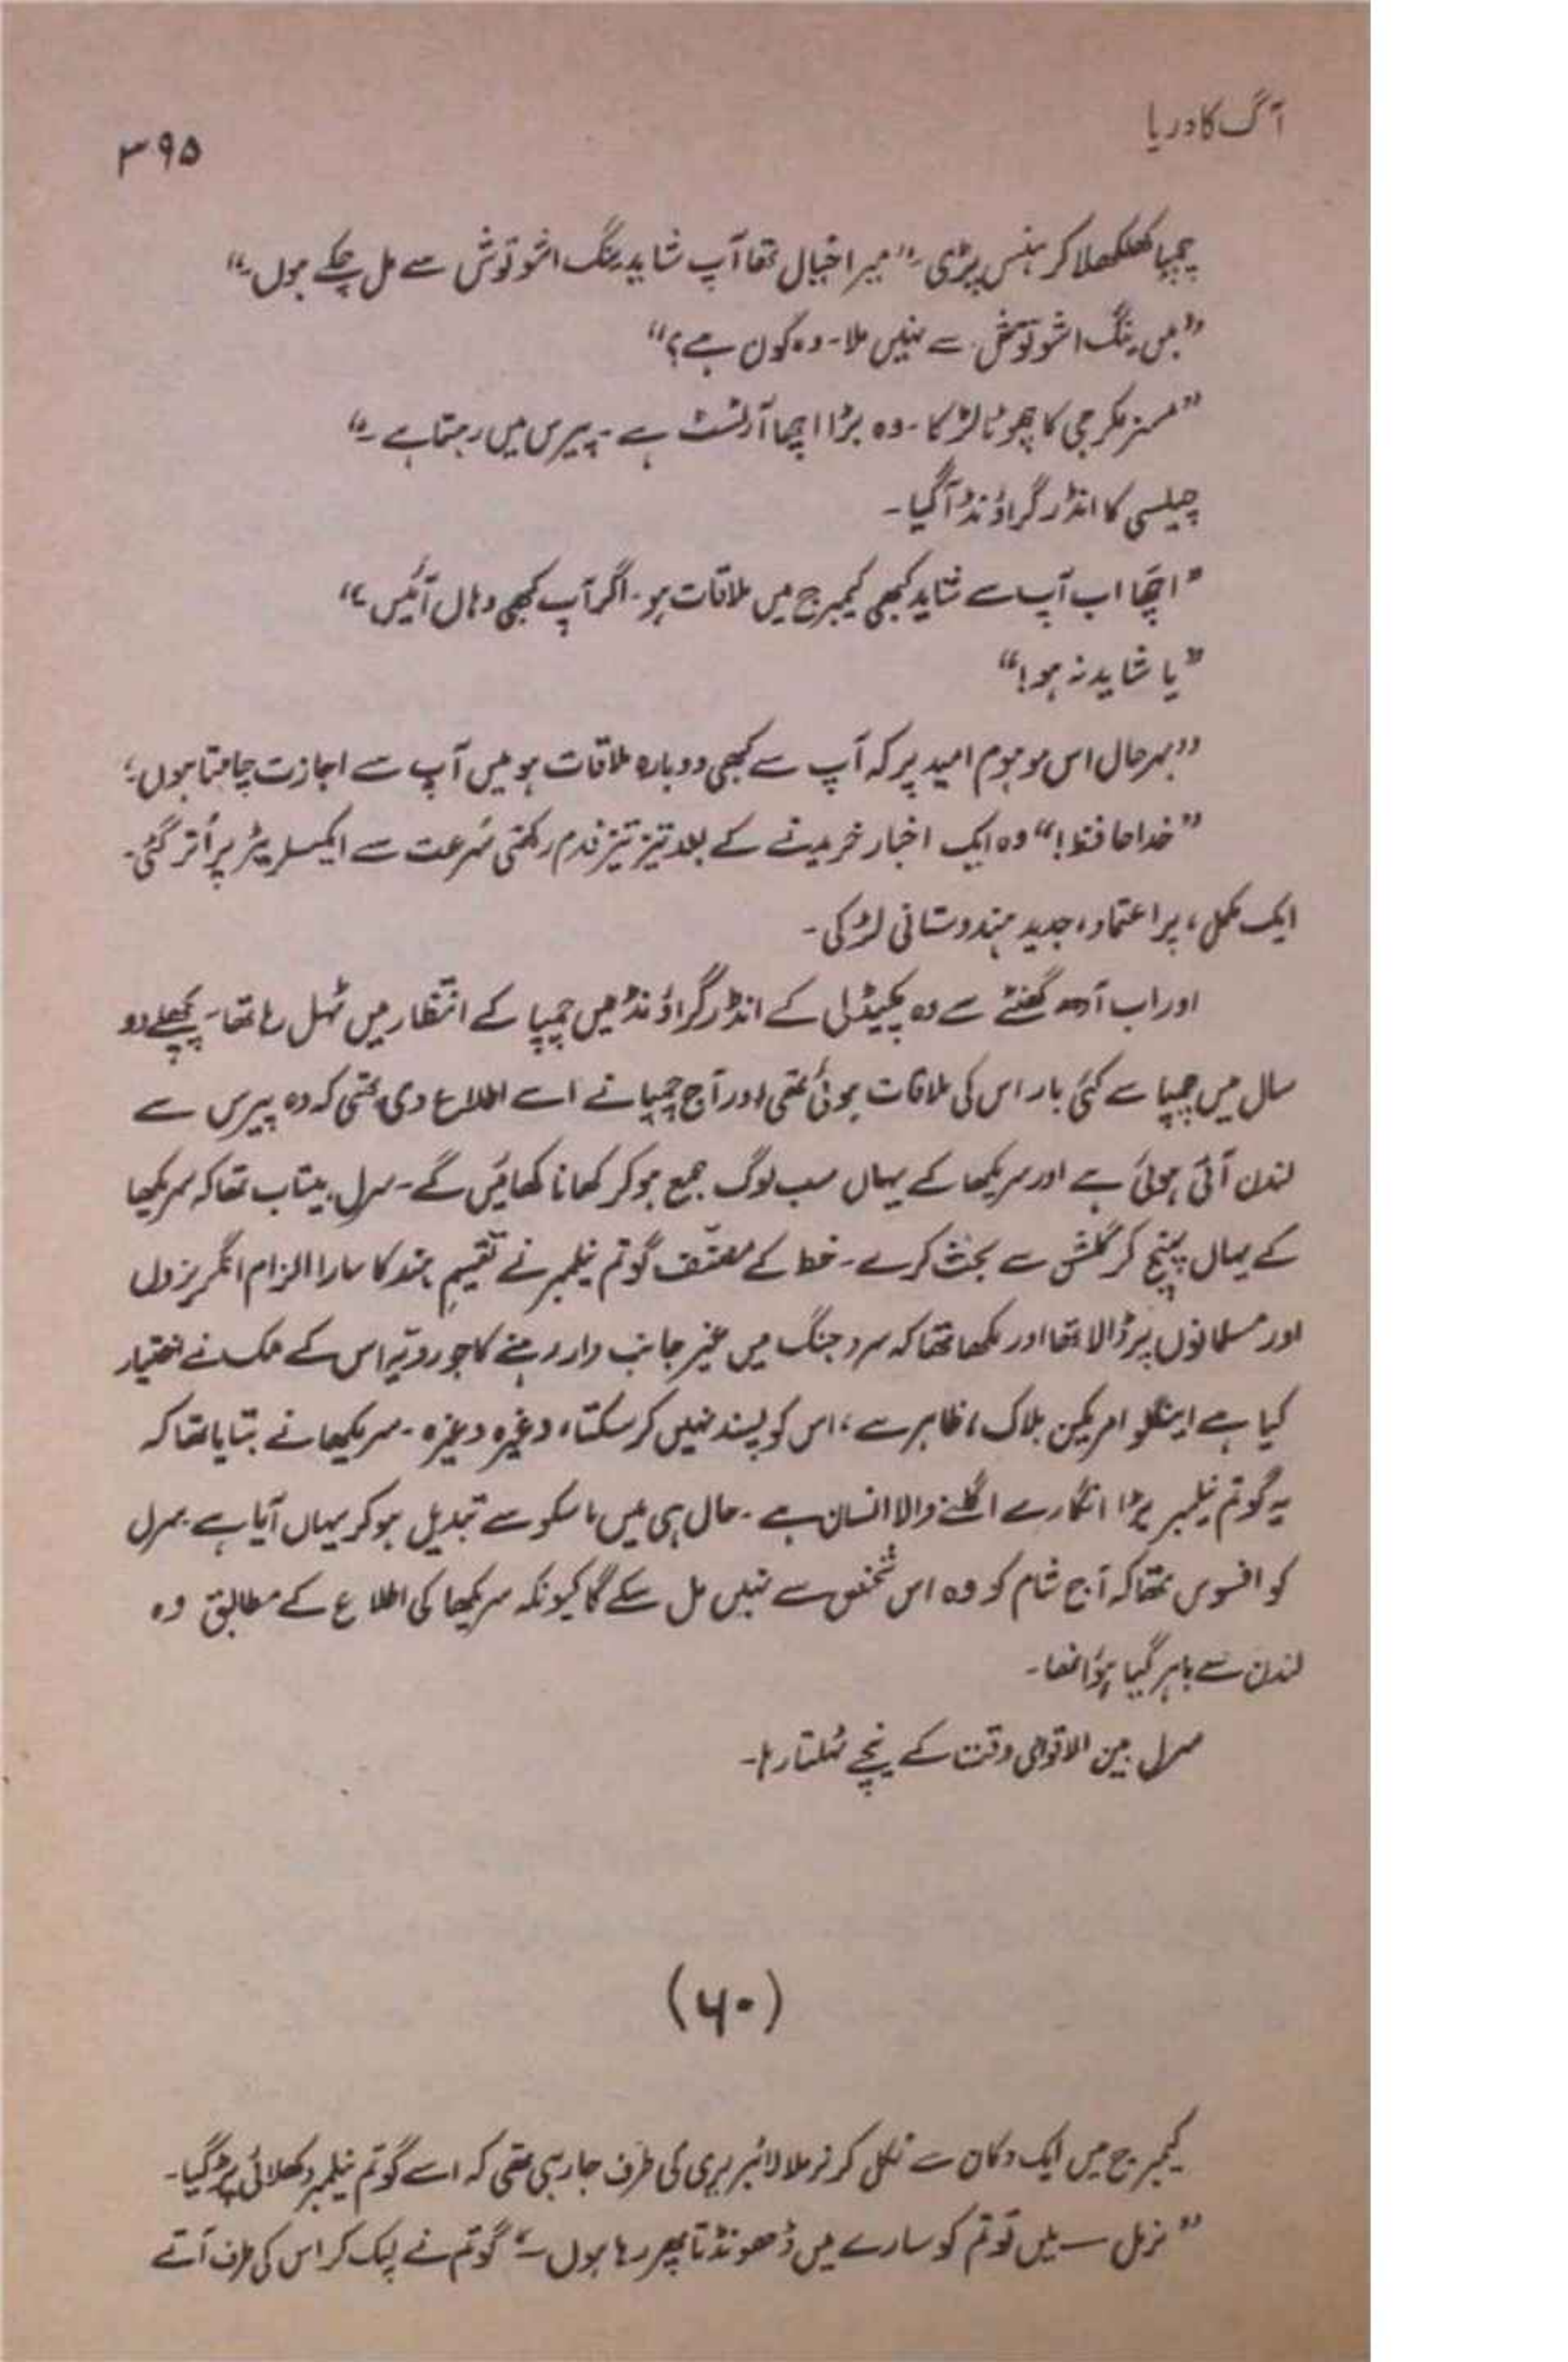 آگ کا دریا
۳۹۵
چمپا کھلکھلا کر ہنس پڑی۔ ”میرا خیال تھا آپ شاید ینگ اشوتوش سے مل چکے ہوں۔“
”میں ینگ اشوتوش سے نہیں ملا۔ وہ کون ہے؟“
”مسز مکرجی کا چھوٹا لڑکا۔ وہ بڑا اچھا آرٹسٹ ہے۔ پیرس میں رہتا ہے۔“
چیلسی کا انڈر گراؤنڈ آگیا۔
”اچھا اب آپ سے شاید کبھی کیمبرج میں ملاقات ہو۔ اگر آپ کبھی وہاں آئیں۔“
”یا شاید نہ ہو!“
”بہرحال اس موہوم امید پر کہ آپ سے کبھی دوبارہ ملاقات ہو میں آپ سے اجازت چاہتا ہوں۔“
”خدا حافظ!“ وہ ایک اخبار خریدنے کے بعد تیز تیز قدم رکھتی سُرعت سے ایکسلریٹر پر اُتر گئی۔
ایک مکمل، پراعتماد، جدید ہندوستانی لڑکی۔
اور اب آدھ گھنٹے سے وہ پکیڈلی کے انڈر گراؤنڈ میں چمپا کے انتظار میں ٹہل رہا تھا۔ پچھلے دو
سال میں چمپا سے کئی بار اس کی ملاقات ہوئی تھی اور آج چمپا نے اسے اطلاع دی تھی کہ وہ پیرس سے
لندن آئی ہوئی ہے اور سریکھا کے یہاں سب لوگ جمع ہو کر کھانا کھائیں گے۔ سرل بیتاب تھا کہ سریکھا
کے یہاں پہنچ کر گلشن سے بحث کرے۔ خط کے مصنّف گوتم نیلمبر نے تقسیمِ ہند کا سارا الزام انگریزوں
اور مسلمانوں پر ڈالا تھا اور لکھا تھا کہ سرد جنگ میں غیر جانب دار رہنے کا جو رویّہ اس کے ملک نے اختیار
کیا ہے اینگلو امریکن بلاک، ظاہر ہے، اس کو پسند نہیں کرسکتا، وغیرہ وغیرہ۔ سریکھا نے بتایا تھا کہ
یہ گوتم نیلمبر بڑا انگارے اگلنے والا انسان ہے۔ حال ہی میں ماسکو سے تبدیل ہو کر یہاں آیا ہے۔ سرل
کو افسوس تھا کہ آج شام کو وہ اس شخص سے نہیں مل سکے گا کیونکہ سریکھا کی اطلاع کے مطابق وہ
لندن سے باہر گیا ہؤا تھا۔
سرل بین الاقوامی وقت کے نیچے ٹہلتا رہا۔
(۶۰)
کیمبرج میں ایک دکان سے نکل کر نرملا لائبریری کی طرف جا رہی تھی کہ اسے گوتم نیلمبر دکھلائی پڑ گیا۔
”نرمل ــ میں تو تم کو سارے میں ڈھونڈتا پھر رہا ہوں ــ“ گوتم نے لپک کر اس کی طرف آتے